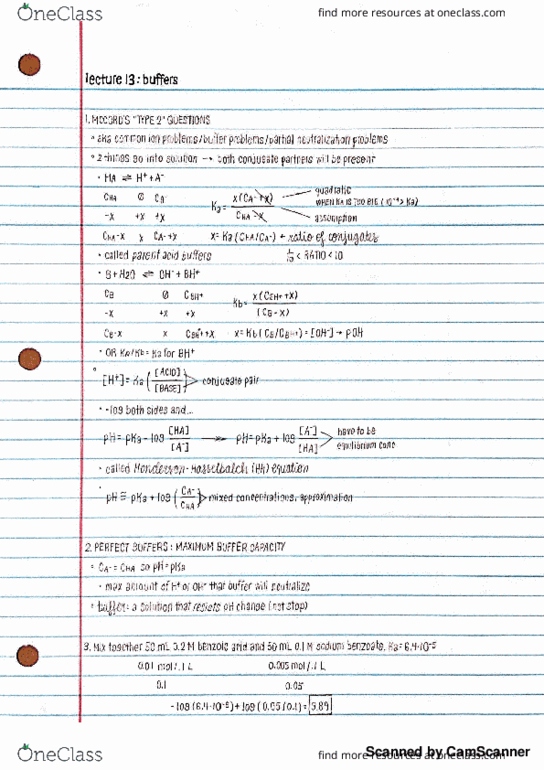 OneClass
find more resources at oneclass.com
lecture 13: buffers
1. MCCORD'S "TYPE 2" QUESTIONS
• aka common ion problems/buffer problems/partial neutralization problems
• 2 things go into solution → both conjugate partners will be present
• HA ⇌ H⁺ + A⁻
C_HA Ø C_A⁻
-x +x +x
C_HA-x x C_A-+x
Ka = x(C_A⁻+x) / C_HA-x
quadratic
WHEN KA IS TOO BIG
assumption
x = Ka (C_HA/C_A⁻) ← ratio of conjugates
• called parent acid buffers 1/10 < RATIO < 10
• B + H2O ⇌ OH⁻ + BH⁺
C_B Ø C_BH⁺
-x +x +x
C_B-x x C_BH⁺+x
Kb = x(C_BH⁺+x) / (C_B-x)
x = Kb (C_B/C_BH⁺) = [OH⁻] → pOH
• OR = Ka for BH⁺
[H⁺] = Ka ([ACID]/[BASE]) conjugate pair
• -log both sides and...
pH = pKa - log [HA]/[A⁻] → pH = pKa + log [A⁻]/[HA] have to be
equilibrium conc
• called Henderson-Hasselbalch (HH) equation
• pH ≅ pKa + log (C_A⁻/C_HA) mixed concentrations, approximation
2. PERFECT BUFFERS: MAXIMUM BUFFER CAPACITY
• C_A⁻ = C_HA so pH = pKa
• max amount of H⁺ or OH⁻ that buffer will neutralize
• buffer: a solution that resists pH change (not stop)
3. Mix together 50 mL 0.2 M benzoic acid and 50 mL 0.1 M sodium benzoate. Ka = 6.4·10⁻⁵
0.01 mol/.1 L 0.005 mol/.1 L
0.1 0.05
-log (6.4·10⁻⁵) + log (0.05/0.1) = 3.89
OneClass
find more resources at oneclass.com
Scanned by CamScanner